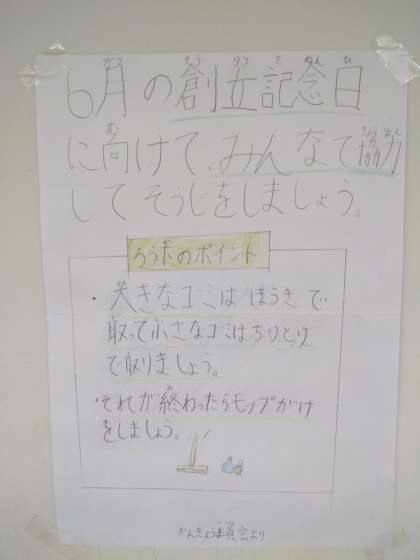 6月の創立記念日
に向けて、みんなで協力
してそうじをしましょう。
のポイント
・大きなゴミはほうきで
取って小さなゴミはちりとり
で取りましょう。
・それが終わったらモップがけ
をしましょう。
かんきょう委員会より